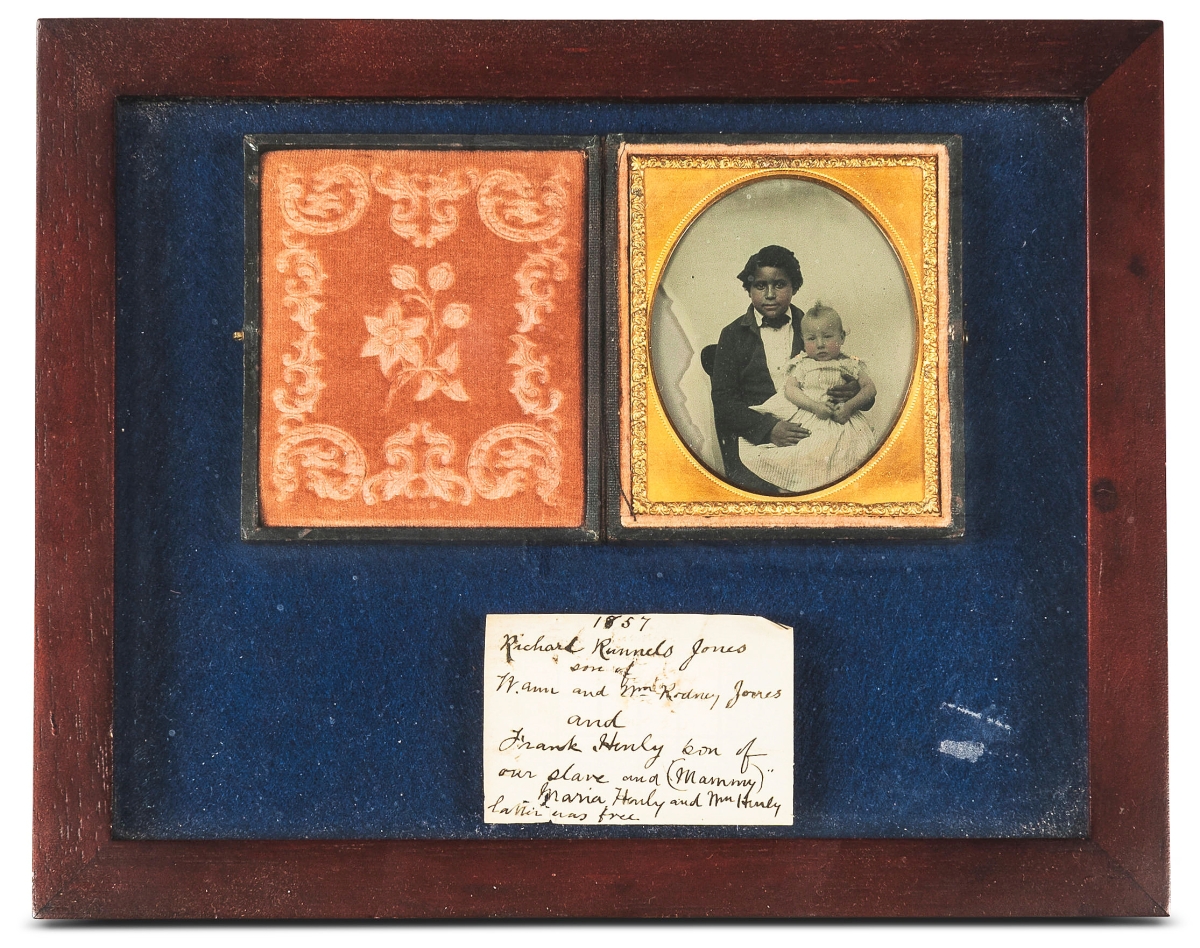 1857
Richard Runnels Jones
son of
W. ann and Wm Rodney Jones
and
Frank Henly son of
our slave and (Mammy)"
Maria Henly and Wm Henly
latter was free